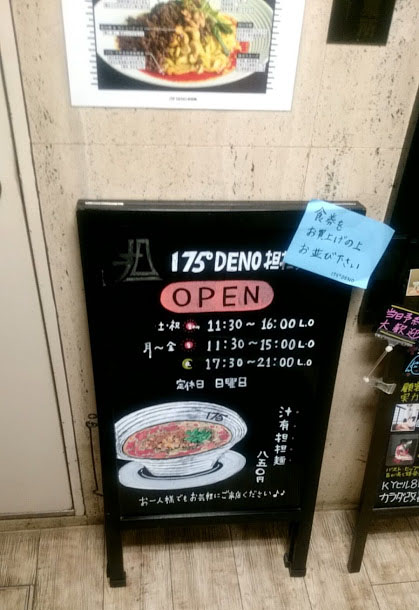 175°DENO 担担
食券を
お買上げの上
お並び下さい
175°DENO
OPEN
土・祝 11:30～16:00 L.O
月～金 11:30～15:00 L.O
17:30～21:00 L.O
定休日 日曜日
175°
汁有担担麺
八五〇円
お一人様でもお気軽にご来店ください♪♪
当日予
大歓迎
KYビル8